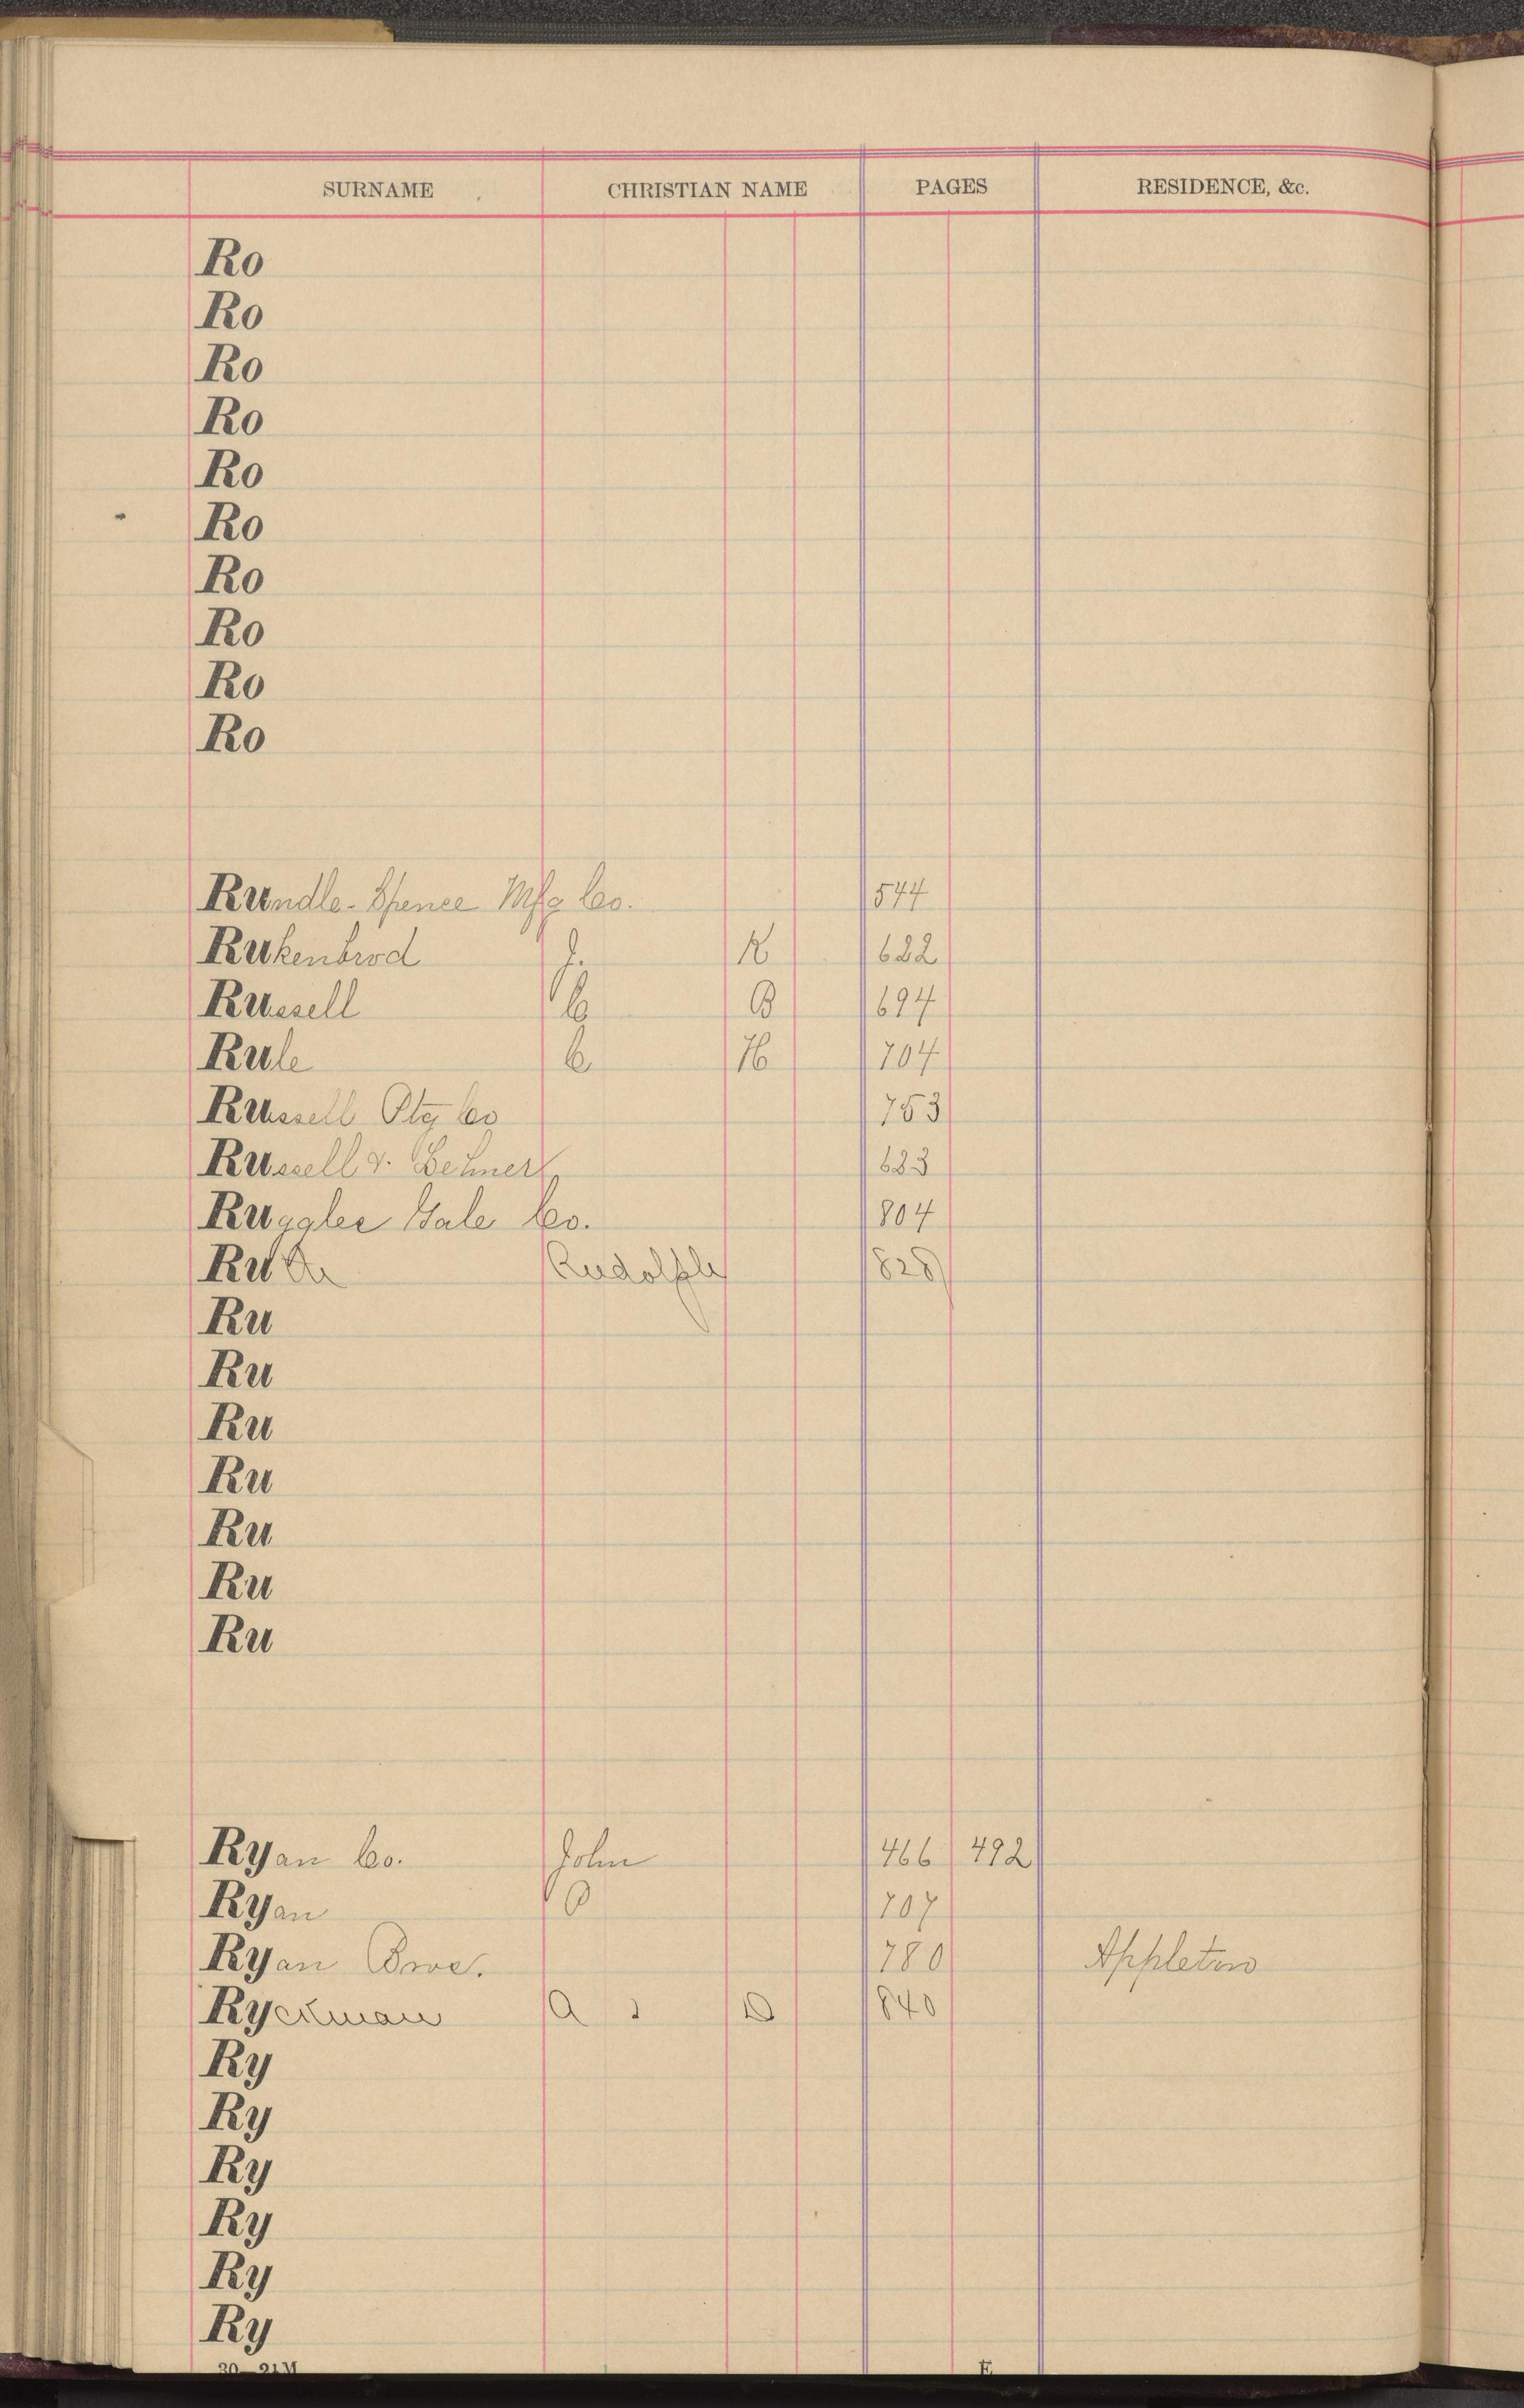 SURNAME CHRISTIAN NAME PAGES RESIDENCE, &c.
Ro
Ro
Ro
Ro
Ro
Ro
Ro
Ro
Ro
Ro
Rundle-Spence Mfg Co. 544
Rukenbrod J. R 622
Russell C B 694
Rule C H 704
Russell Ptg Co 753
Russell & 683
Ruggles Gale Co. 804
Ruth Rudolph 828
Ru
Ru
Ru
Ru
Ru
Ru
Ru
Ryan Co. John 466 492
Ryan O 707
Ryan Bros. 780 Appleton
Ryckman A D 840
Ry
Ry
Ry
Ry
Ry
Ry
30—21M E